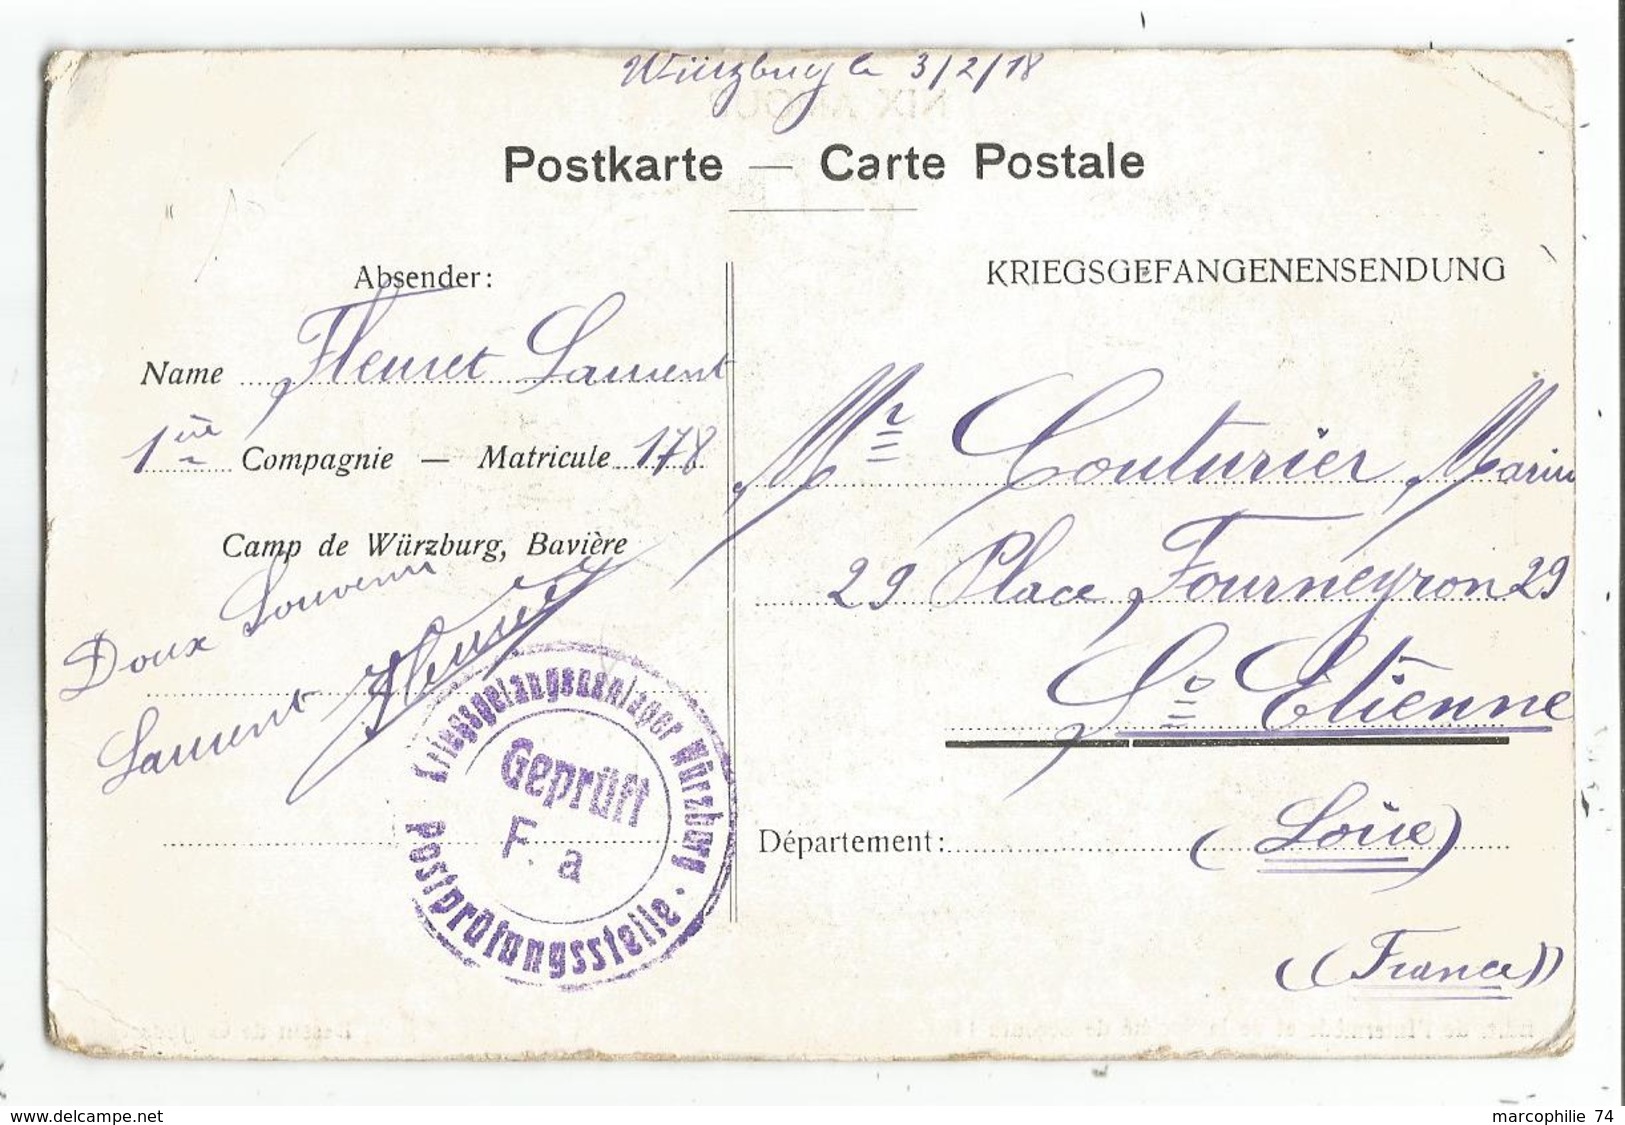 Würzburg le 3/2/18
Postkarte — Carte Postale
Absender:
Name Fleuret Laurent
1ère Compagnie — Matricule 178
Camp de Würzburg, Bavière
Doux Souvenir
Laurent Fleuret
Kriegsgefangenenlager Würzburg.
Postprüfungsstelle
Geprüft
F. a
KRIEGSGEFANGENENSENDUNG
Mr Couturier Marin
29 Place Fourneyron 29
St Etienne
Département: (Loire)
((France))
www.delcampe.net
marcophilie 74